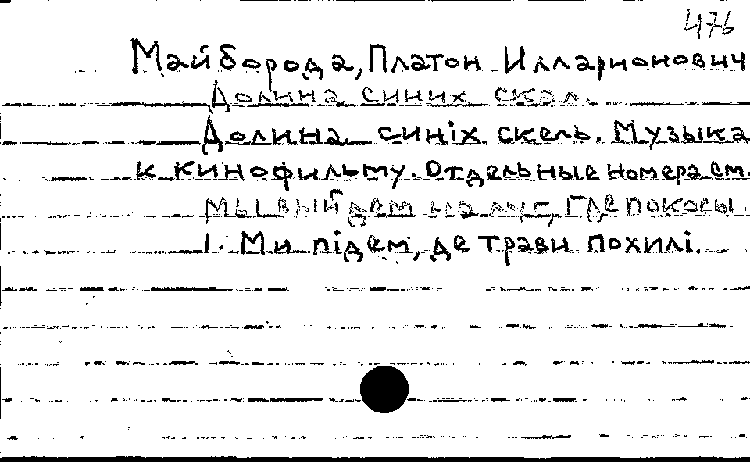 476
Майборода, Платон Илларионович
Долина синих скал.
Долина синіх скель. Музыка
к кинофильму. Отдельные номера см.
Мы выйдем на луг, где покосы
1. Ми підем, де трави похилі.